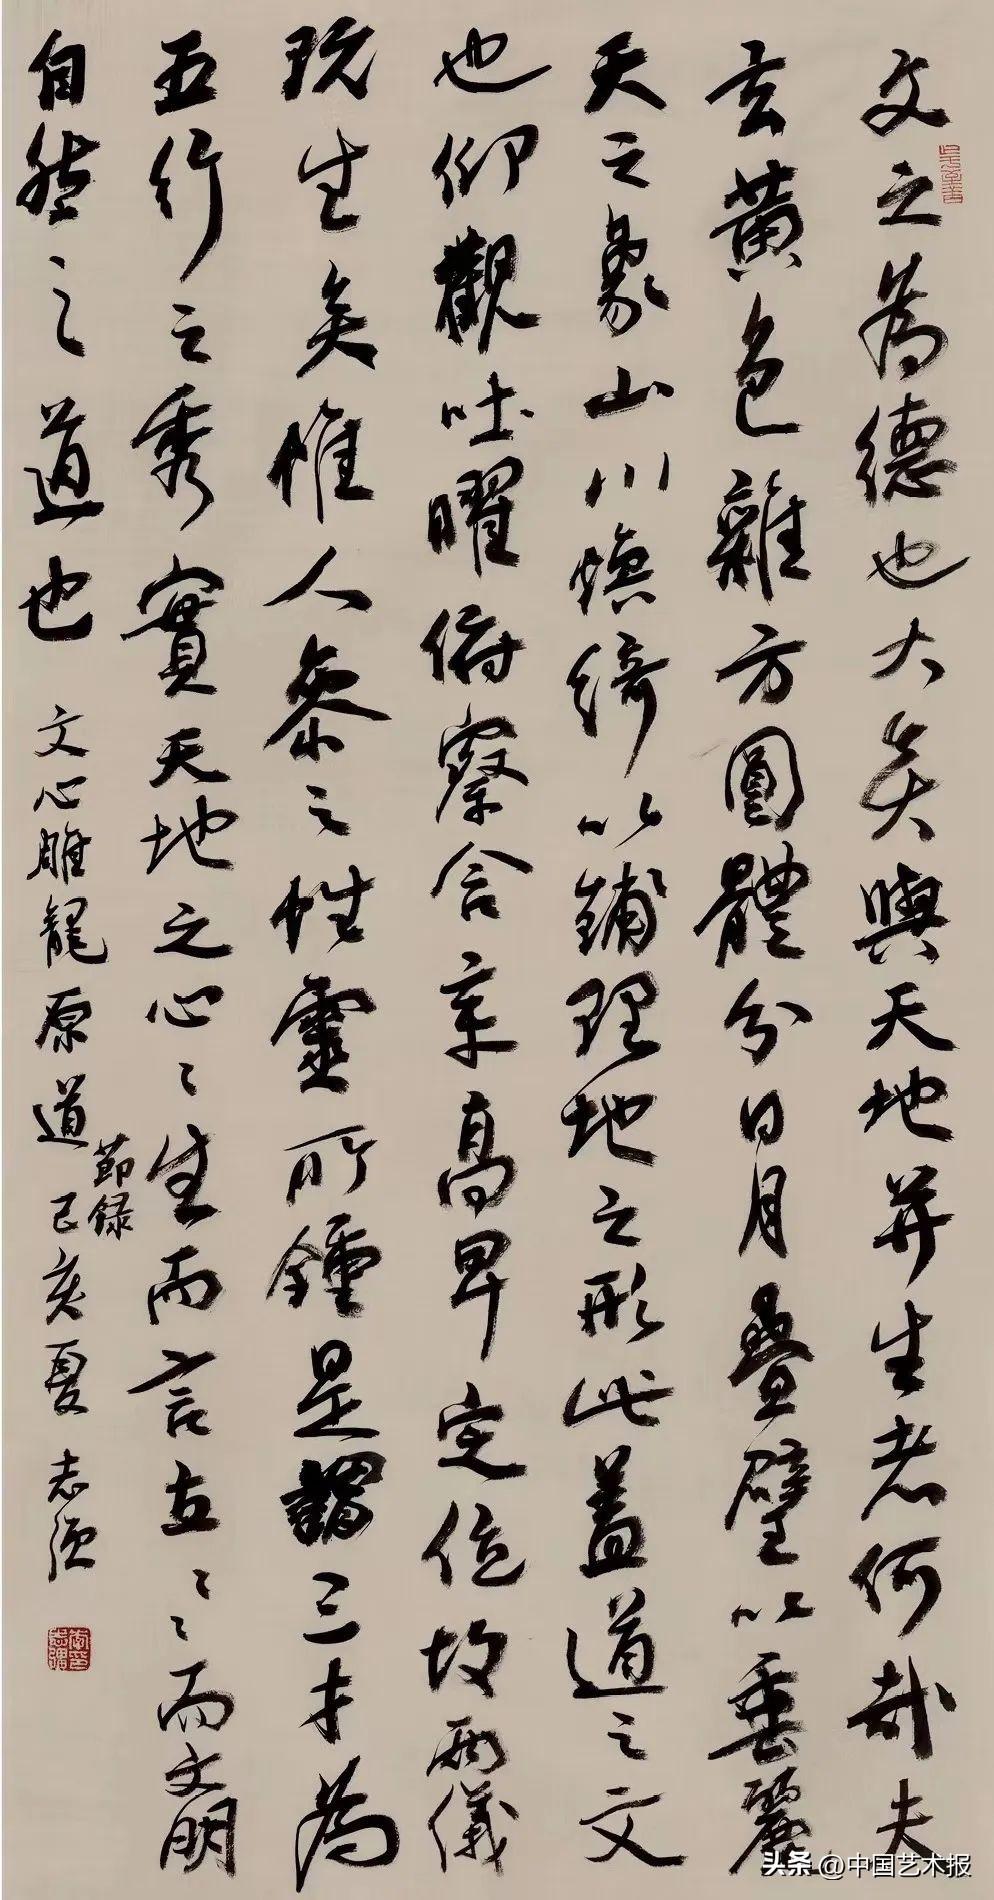 文之為德也大矣與天地并生者何哉夫
玄黃色雜方圓體分日月疊璧以垂麗
天之象山川煥綺以鋪理地之形此蓋道之文
也仰觀吐曜俯察含章高卑定位故兩儀
既生矣惟人參之性靈所鍾是謂三才為
五行之秀實天地之心〻生而言立〻〻而文明
自然之道也
文心雕龍原道
節錄
己亥夏 志强
头条 @中国艺术报